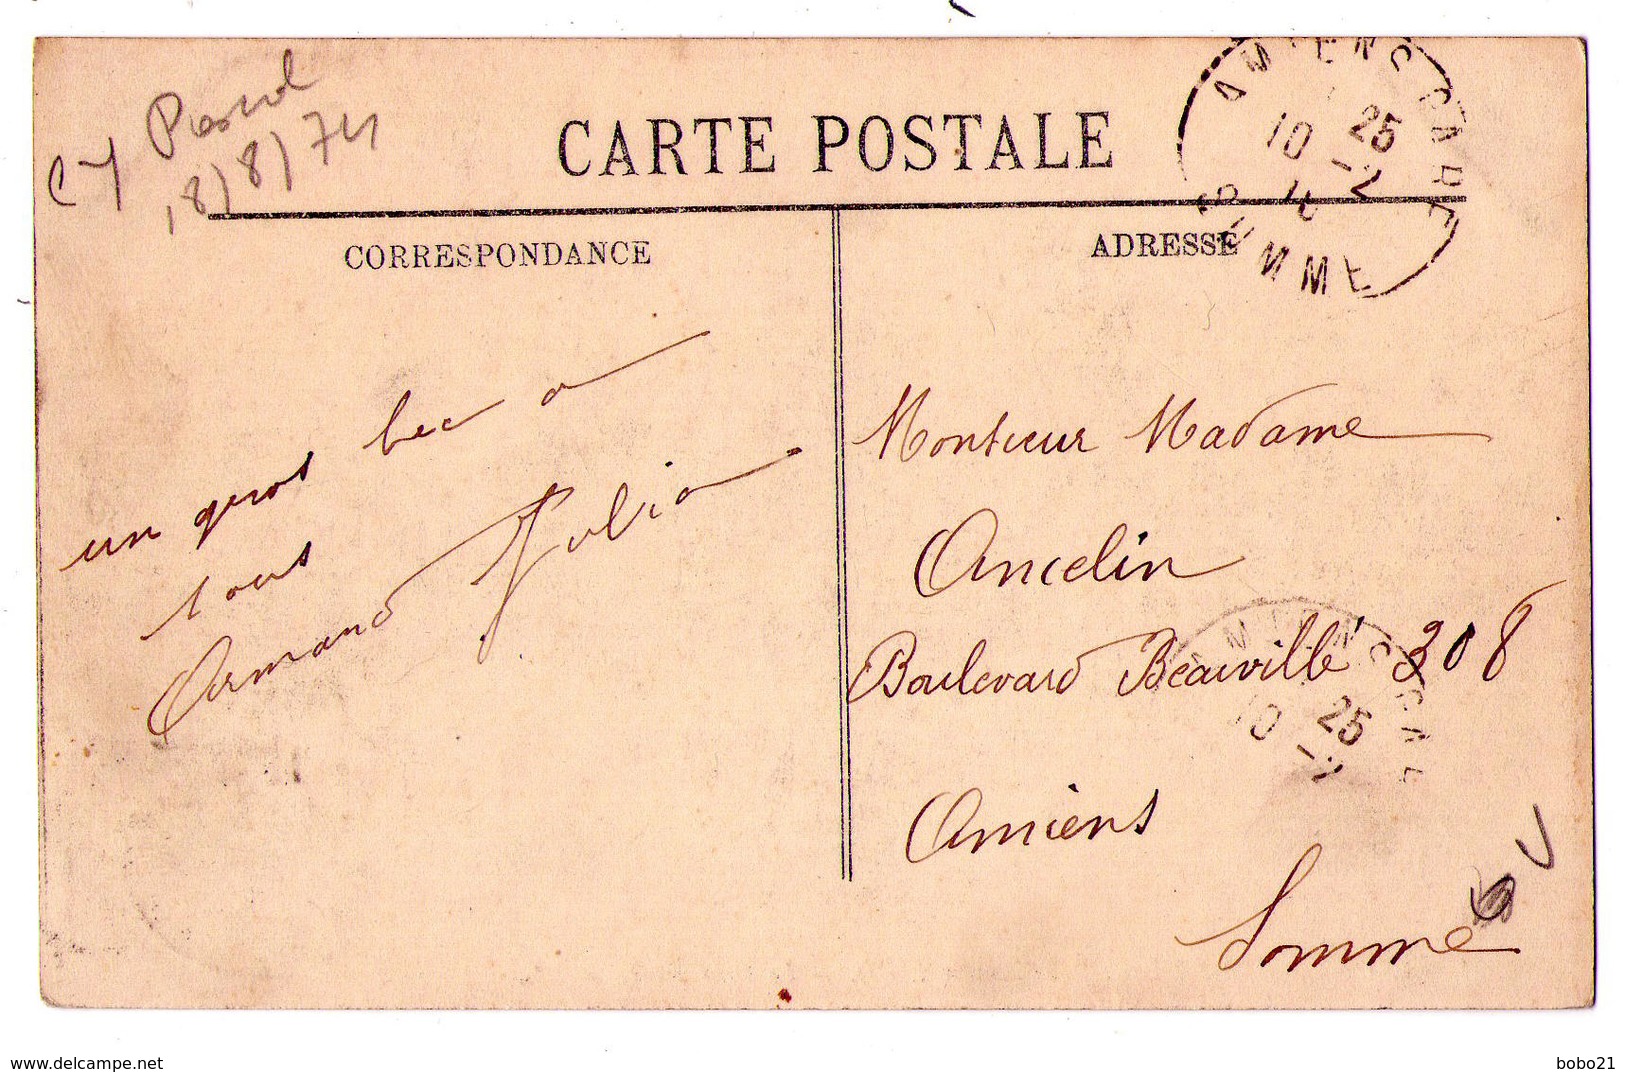 18/8/74
CARTE POSTALE
AMIENS GARE
10 25
SOMME
CORRESPONDANCE
ADRESSE
un gros bec a
tous
Armand Julia
Monsieur Madame
Ancelin
Boulevard Beauvillé 308
Amiens
Somme
AMIENS GARE
10 25
www.delcampe.net
bobo21